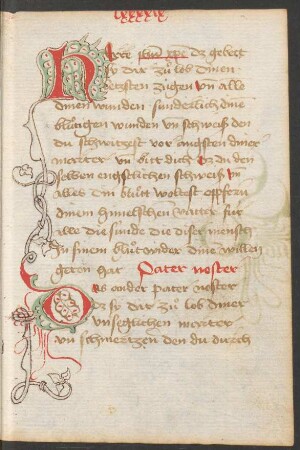 Herre jhesu xpe dz gebett
ich dir zů lob dinen
letzsten zügen vn̄ alle
dinen wunden sunderlich dine
blůtigen wunden vn̄ schweiß den
du schwitzest vor angsten diner
marter vn̄ bitt dich dz du den
selben engstlichen schweiß vn̄
alles din blůtt wollest opffern
dinem himelschen vatter für
alle die sünde die diser mensch
ye sinem blůt wider dine willen
geton hat Pater noster
Das ander pater noster
ich dir zů lob diner
vnseglichen marter
vn̄ schmertzen den du durch